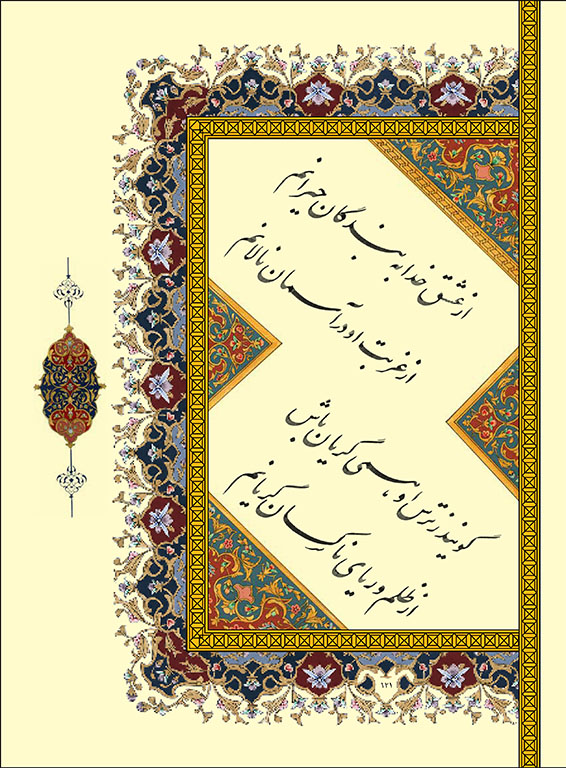 از عشق خدا به بندگان حیرانم
از غربت او در آسمان نالانم
گویند ز ترس او همی گریان باش
از ظلم و ریای ناکسان گریانم
۱۲۱